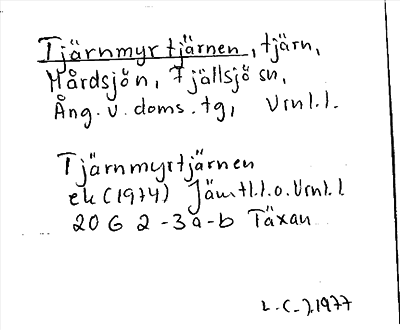 Tjärnmyrtjärnen, tjärn,
Mårdsjön, Fjällsjö sn,
Ång. v. doms. tg, Vrnl.l.
Tjärnmyrtjärnen
ek (1974) Jämtl.l.o.Vrnl.l
20 G 2-3 a-b Täxan
L.C.J.1977